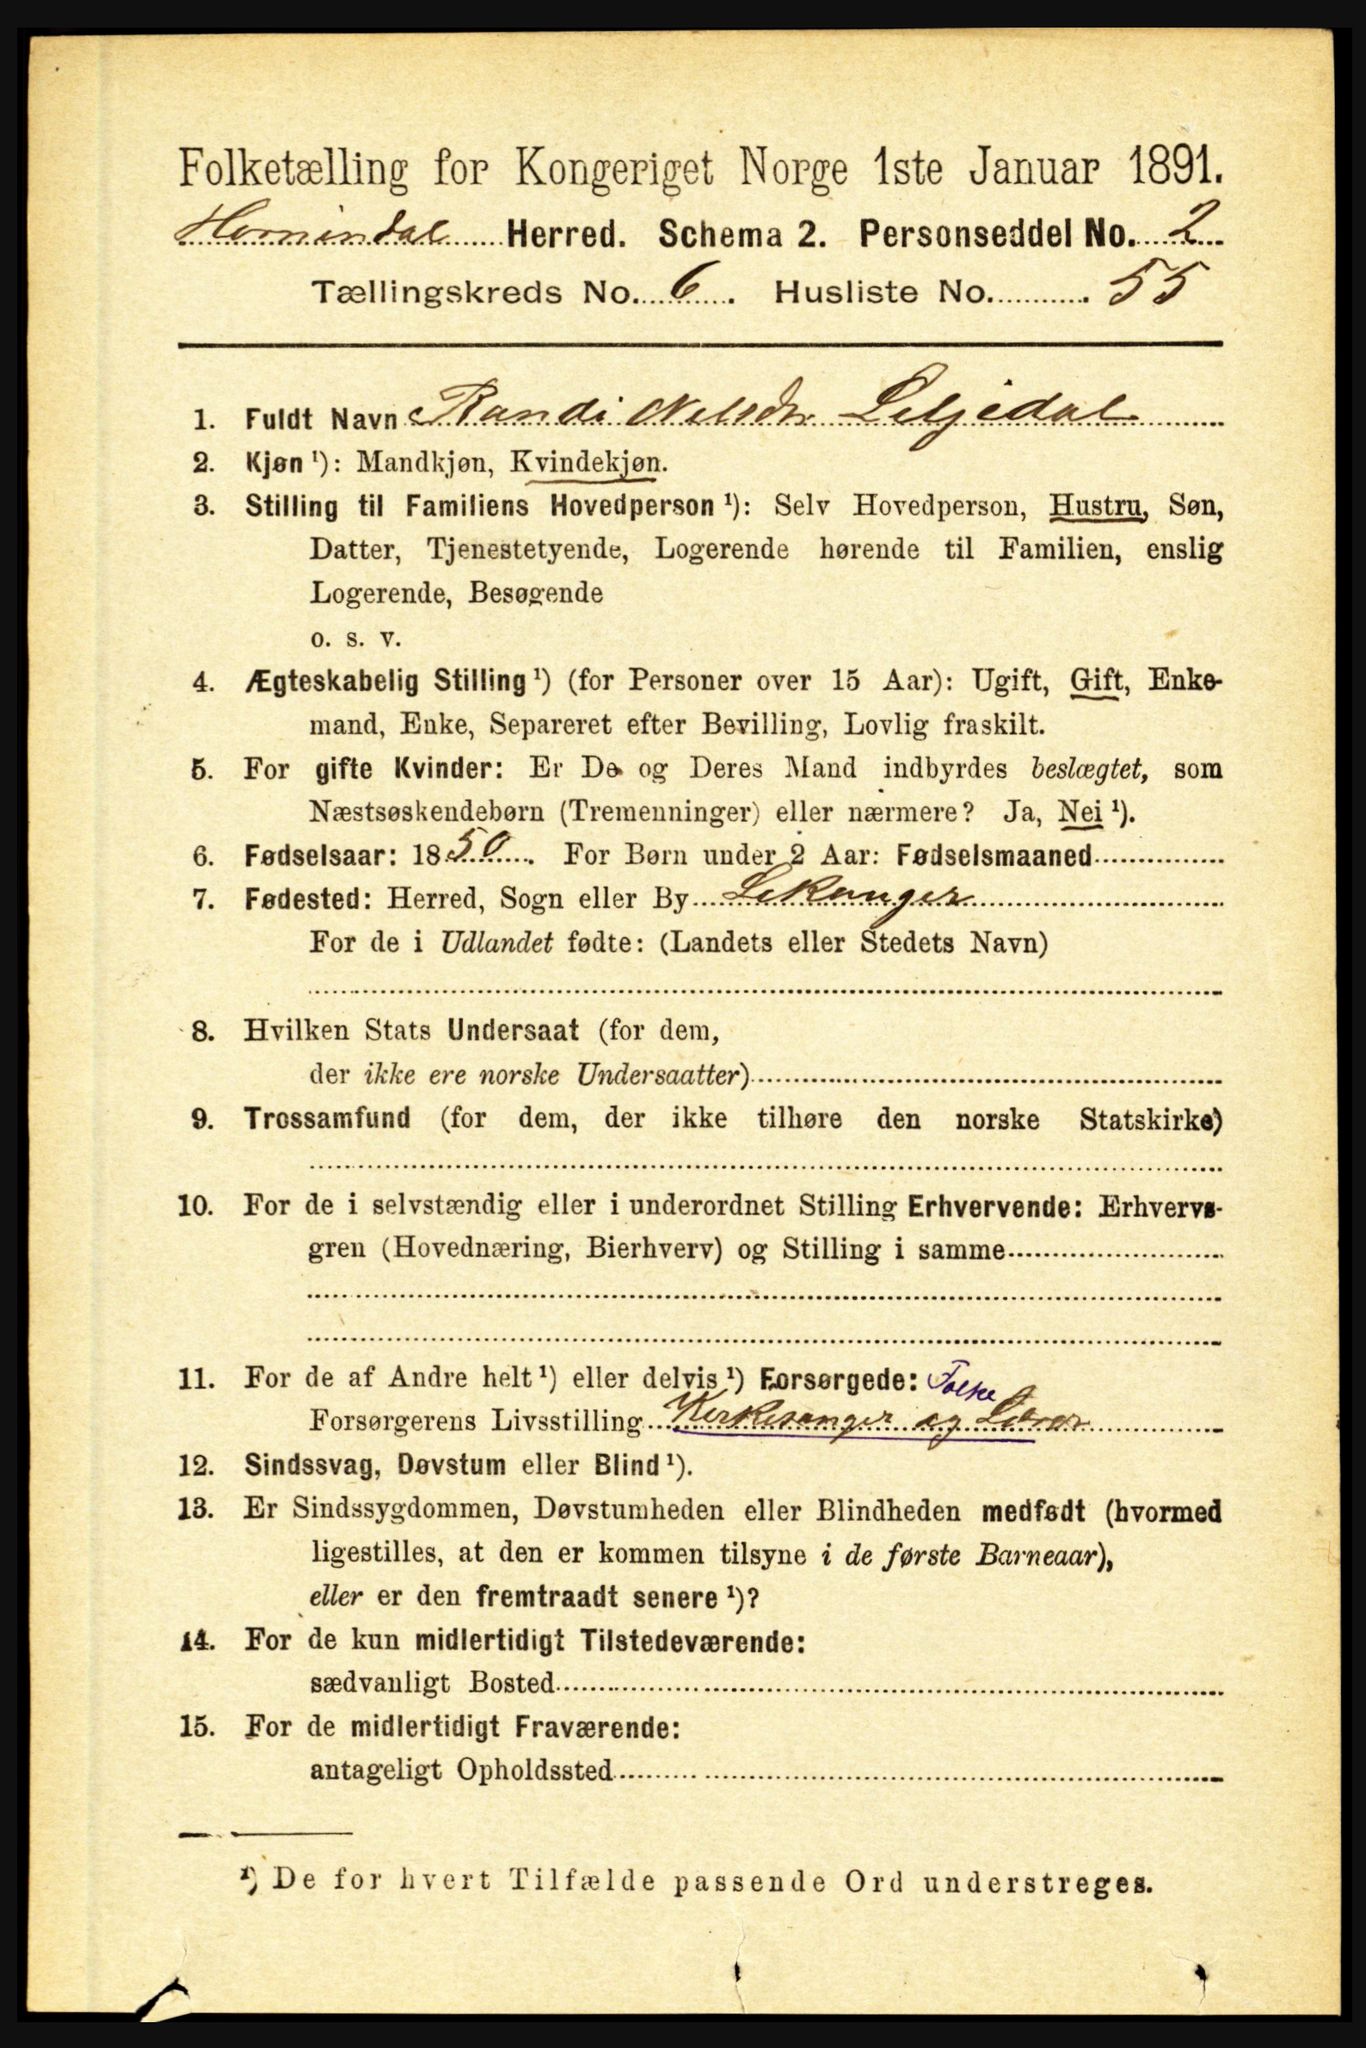 Folketælling for Kongeriget Norge 1ste Januar 1891.
Hornindal Herred. Schema 2. Personseddel No. 2
Tællingskreds No. 6. Husliste No. 55
1. Fuldt Navn Randi Nelsdtr Liljedal
2. Kjøn ¹): Mandkjøn, Kvindekjøn.
3. Stilling til Familiens Hovedperson ¹): Selv Hovedperson, Hustru, Søn,
Datter, Tjenestetyende, Logerende hørende til Familien, enslig
Logerende, Besøgende
o. s. v.
4. Ægteskabelig Stilling ¹) (for Personer over 15 Aar): Ugift, Gift, Enke-
mand, Enke, Separeret efter Bevilling, Lovlig fraskilt.
5. For gifte Kvinder: Er De og Deres Mand indbyrdes beslægtet, som
Næstsøskendebørn (Tremenninger) eller nærmere? Ja, Nei ¹).
6. Fødselsaar: 1850. For Børn under 2 Aar: Fødselsmaaned
7. Fødested: Herred, Sogn eller By Lekanger
For de i Udlandet fødte: (Landets eller Stedets Navn)
8. Hvilken Stats Undersaat (for dem,
der ikke ere norske Undersaatter)
9. Trossamfund (for dem, der ikke tilhøre den norske Statskirke)
10. For de i selvstændig eller i underordnet Stilling Erhvervende: Erhvervs-
gren (Hovednæring, Bierhverv) og Stilling i samme
11. For de af Andre helt ¹) eller delvis ¹) Forsørgede: Folke
Forsørgerens Livsstilling Kirkesanger og Lærer
12. Sindssvag, Døvstum eller Blind ¹).
13. Er Sindssygdommen, Døvstumheden eller Blindheden medfødt (hvormed
ligestilles, at den er kommen tilsyne i de første Barneaar),
eller er den fremtraadt senere ¹)?
14. For de kun midlertidigt Tilstedeværende:
sædvanligt Bosted
15. For de midlertidigt Fraværende:
antageligt Opholdssted
¹) De for hvert Tilfælde passende Ord understreges.